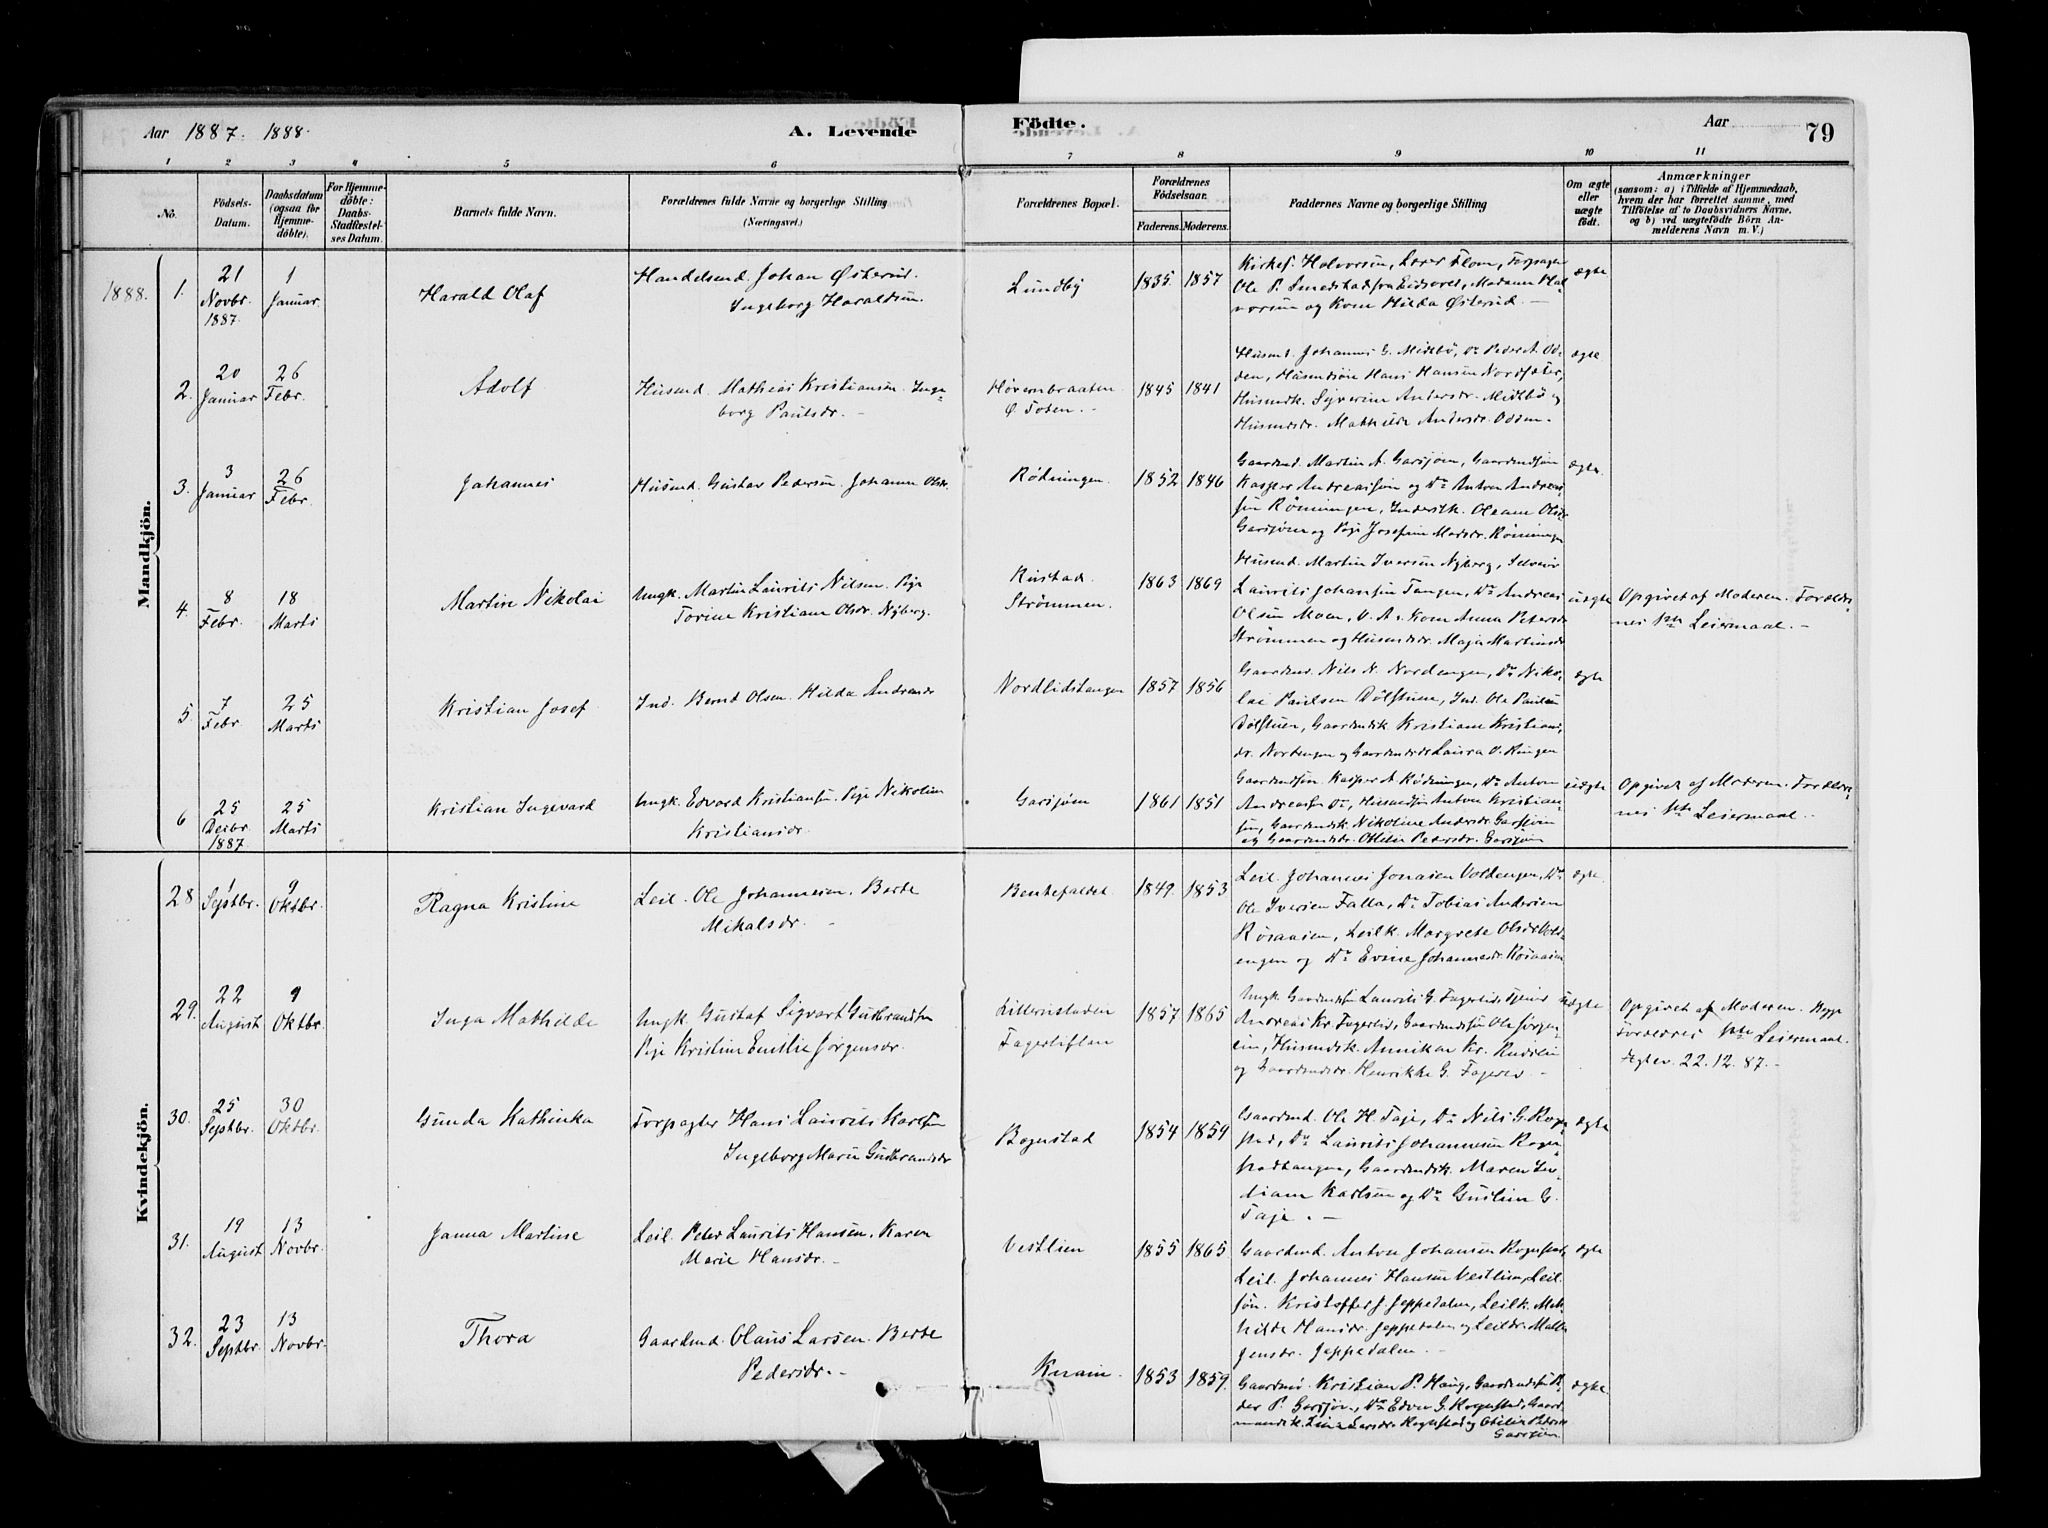 Aar 1887. 1888. A. Levende Födte. Aar 79
1 2 3 4 5 6 7 8 9 10 11
No. Födsels-Datum. Daabsdatum (ogsaa for Hjemmedöbte). For Hjemmedöbte: Daabs-Stadfæstelses Datum. Barnets fulde Navn. Forældrenes fulde Navne og borgerlige Stilling (Næringsvei.) Forældrenes Bopæl. Forældrenes Födselsaar. Faderens. Moderens. Faddernes Navne og borgerlige Stilling Om ægte eller uægte født. Anmærkninger (saasom: a) i Tilfælde af Hjemmedaab, hvem der har forrettet samme, med Tilföielse af to Daabsvidners Navne, og b) ved uægtefödte Börn Anmelderens Navn m. V.)
Mandkjön.
1888. 1. 21 Novbr. 1887. 1 Januar. Harald Olaf
Johan Østerud. Ingeborg Haraldsen.
Lundby 1835. 1857
Kirkes. Halvorsen, Lærer Flom, Forpagter
Ole P. Smedstad fra Eidsvold, Madame Hal-
vorsen og Kone Hilda Østerud. —
ægte
2. 20 Januar 26 Febr. Adolf
Husmd. Mathias Kristiansen. Inge-
borg Paulsdr. —
Hövernbraaten Ø. Toten. — 1845 1841
Husmd. Johannes G. Midtbö, Do Peder A. Od-
den, Husmdsön Hans Hansen Nordsæter,
Husmdk. Syverine Andersdr. Midtbö og
Husmdsdr. Mathilde Andersdr. Odden.
ægte
3. 3 Januar 26 Febr. Johannes
Husmd. Gustav Pedersen. Johanne Olsdr.
Rödningen. 1852 1846
Gaardmd. Martin A. Garsjöen, Gaardmdsön
Kasper Andreassen og Do Anton Andreas-
sen Rönningen, Oleane Olsdr.
Garsjöen og Pige Josefine Madsdr. Rönningen
ægte
4. 8 Febr. 18 Marts Martin Nikolai
Ungk. Martin Laurits Nilsen. Pige
Torine Kristiane Olsdr. Nyberg.
Rustad. Strömmen. 1863 1869
Husmd. Martin Iversen Nyberg, Selveier
Laurits Johansen Tangen, Do Andreas
Olsen Moen, Kone Anna Petersdr.
Strömmen og Husmdsdr. Maja Martinsdr.
uægte Opgivet af Moderen. Forældre-
nes 1ste Leiermaal. —
5. 7 Febr. 25 Marts Kristian Josef
Ind. Bernd Olsen. Hilda Andreasdr.
Nordlidstangen 1857 1856
Gaardmd. Nils N. Nordengen, Do Niko-
lai Paulsen Dölstuen, Ind. Ole Paulsen
Dölstuen, Gaardmdsk. Kristiane Kristians-
dr. Nordengen og Gaardmdsdr. Laura O. Ringen
ægte
6 25 Decbr. 1887 25 Marts Kristian Ingevard
Ungk. Edvard Kristiansen. Pige Nikoline
Kristiansdr.
Garsjöen 1861 1851
Gaardmdsön. Kasper A. Rödningen, Do Anton
Andreassen Do, Husmdsön Anton Kristian-
sen, Gaardmdsk. Nikoline Andersdr. Garsjöen
og Gaardmdsdr. Otilie Petersdr. Garsjöen
uægte Opgivet af Moderen. Forældre-
nes 1ste Leiermaal. —
Kvindekjön.
28 1 Septbr. 9 Oktbr. Ragna Kristine
Leil. Ole Johannesen. Berte
Mikalsdr. —
Bentefaldet 1849. 1853
Leil. Johannes Jonasen Voldengen, Do
Ole Iversen Falla, Do Tobias Andersen
Rösaasen, Leilk. Margrete Olsdr. Vold-
engen og Do Evine Johannesdr. Rösaasen
ægte.
29. 22 August 9 Oktbr. Inga Mathilde
Ungk. Gustaf Sigvart Gudbrandsen
Pige Kristine Emilie Jörgensdr.
Fagerliften 1857 1865
Ungk. Gaardmdsön Laurits G. Fagerlid, Tjener
Andreas Kr. Fagerlid, Gaardmdsön Ole Jörgen-
sen, Husmdsk. Annikan Kr. Rudslie
og Gaardmdsdr. Henrikke G. Fagerli. —
uægte Opgivet af Moderen. Begge
Forældres 1ste Leiermaal.
Ægtev. 22.12.87. —
30. 25 Septbr. 30 Oktbr. Gunda Kathinka
Forpagter Hans Laurits Karlsen
Ingeborg Marie Gudbrandsdr.
Rognstad 1854 1859
Gaardmd. Ole H. Taje, Do Nils G. Rogn-
stad, Do Laurits Johannesen Rogn-
stadtangen, Gaardmdsk. Maren In-
diane Karlsen og Do Gustine G.
Taje. —
ægte
31. 19 August 13 Novbr. Janna Martine
Leil. Peter Laurits Hansen. Karen
Marie Hansdr. —
Vestlien 1855 1865
Gaardmd. Anton Johansen Rognstad,
Leil. Johannes Hansen Vestlien, Leil.
sön. Kristoffer J. Jeppedalen, Leilk. Mat-
hilde Hansdr. Jeppedalen og Leildr.
Jensdr. Jeppedalen. —
ægte
32. 23 Septbr. 13 Novbr. Thora
Gaardmd. Olaus Larsen. Berte
Pedersdr. —
Knain. 1853 1859.
Gaardmd. Kristian P. Haug, Gaardmdsön Pe-
der P. Garsjöen, Do Edvin G. Rognstad, Gaard-
mandsk. Lina Larsdr. Rognstad og Otilie Peders.
Garsjöen.
ægte.